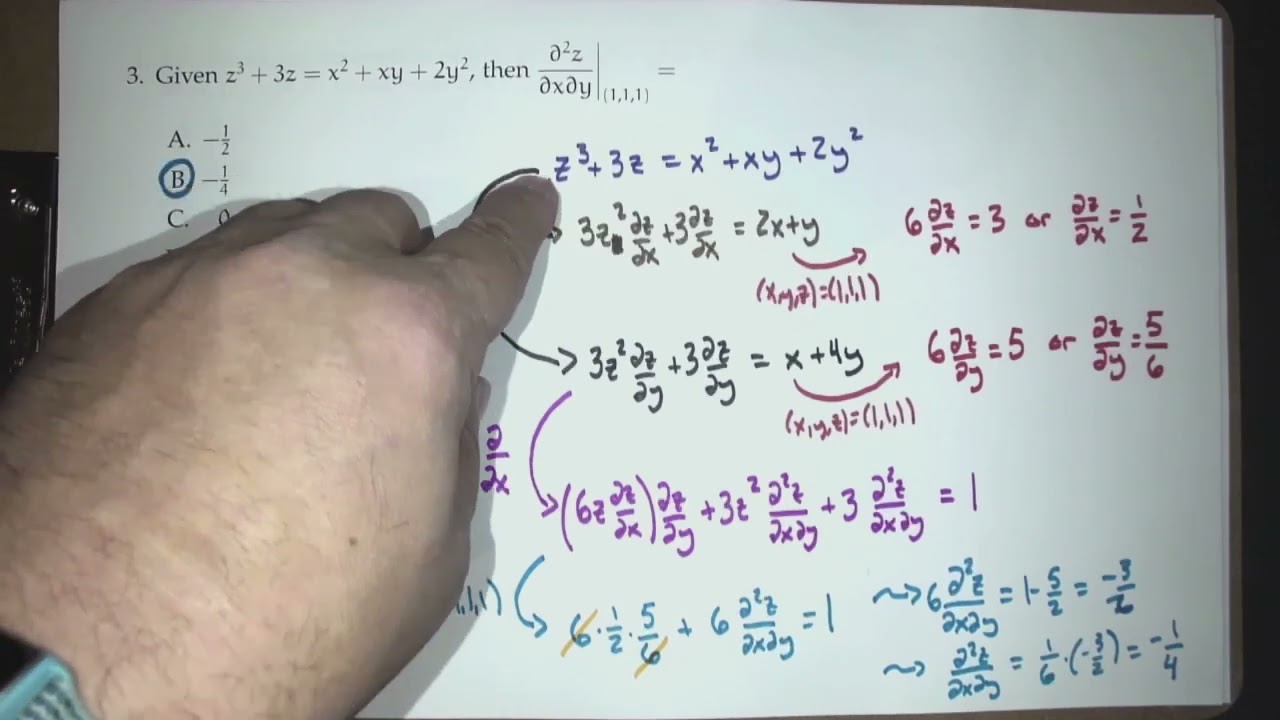 3. Given z³ + 3z = x² + xy + 2y², then ∂²z/∂x∂y |(1,1,1) =
A. −1/2
B. −1/4
C. 0
z³ + 3z = x² + xy + 2y²
3z² ∂z/∂x + 3 ∂z/∂x = 2x+y
(x,y,z)=(1,1,1)
6 ∂z/∂x = 3 or ∂z/∂x = 1/2
3z² ∂z/∂y + 3 ∂z/∂y = x + 4y
(x,y,z)=(1,1,1)
6 ∂z/∂y = 5 or ∂z/∂y = 5/6
∂/∂x
(6z ∂z/∂x) ∂z/∂y + 3z² ∂²z/∂x∂y + 3 ∂²z/∂x∂y = 1
,1,1)
6 · 1/2 · 5/6 + 6 ∂²z/∂x∂y = 1
⤳ 6 ∂²z/∂x∂y = 1 - 5/2 = -3/2
⤳ ∂²z/∂x∂y = 1/6 · (-3/2) = -1/4